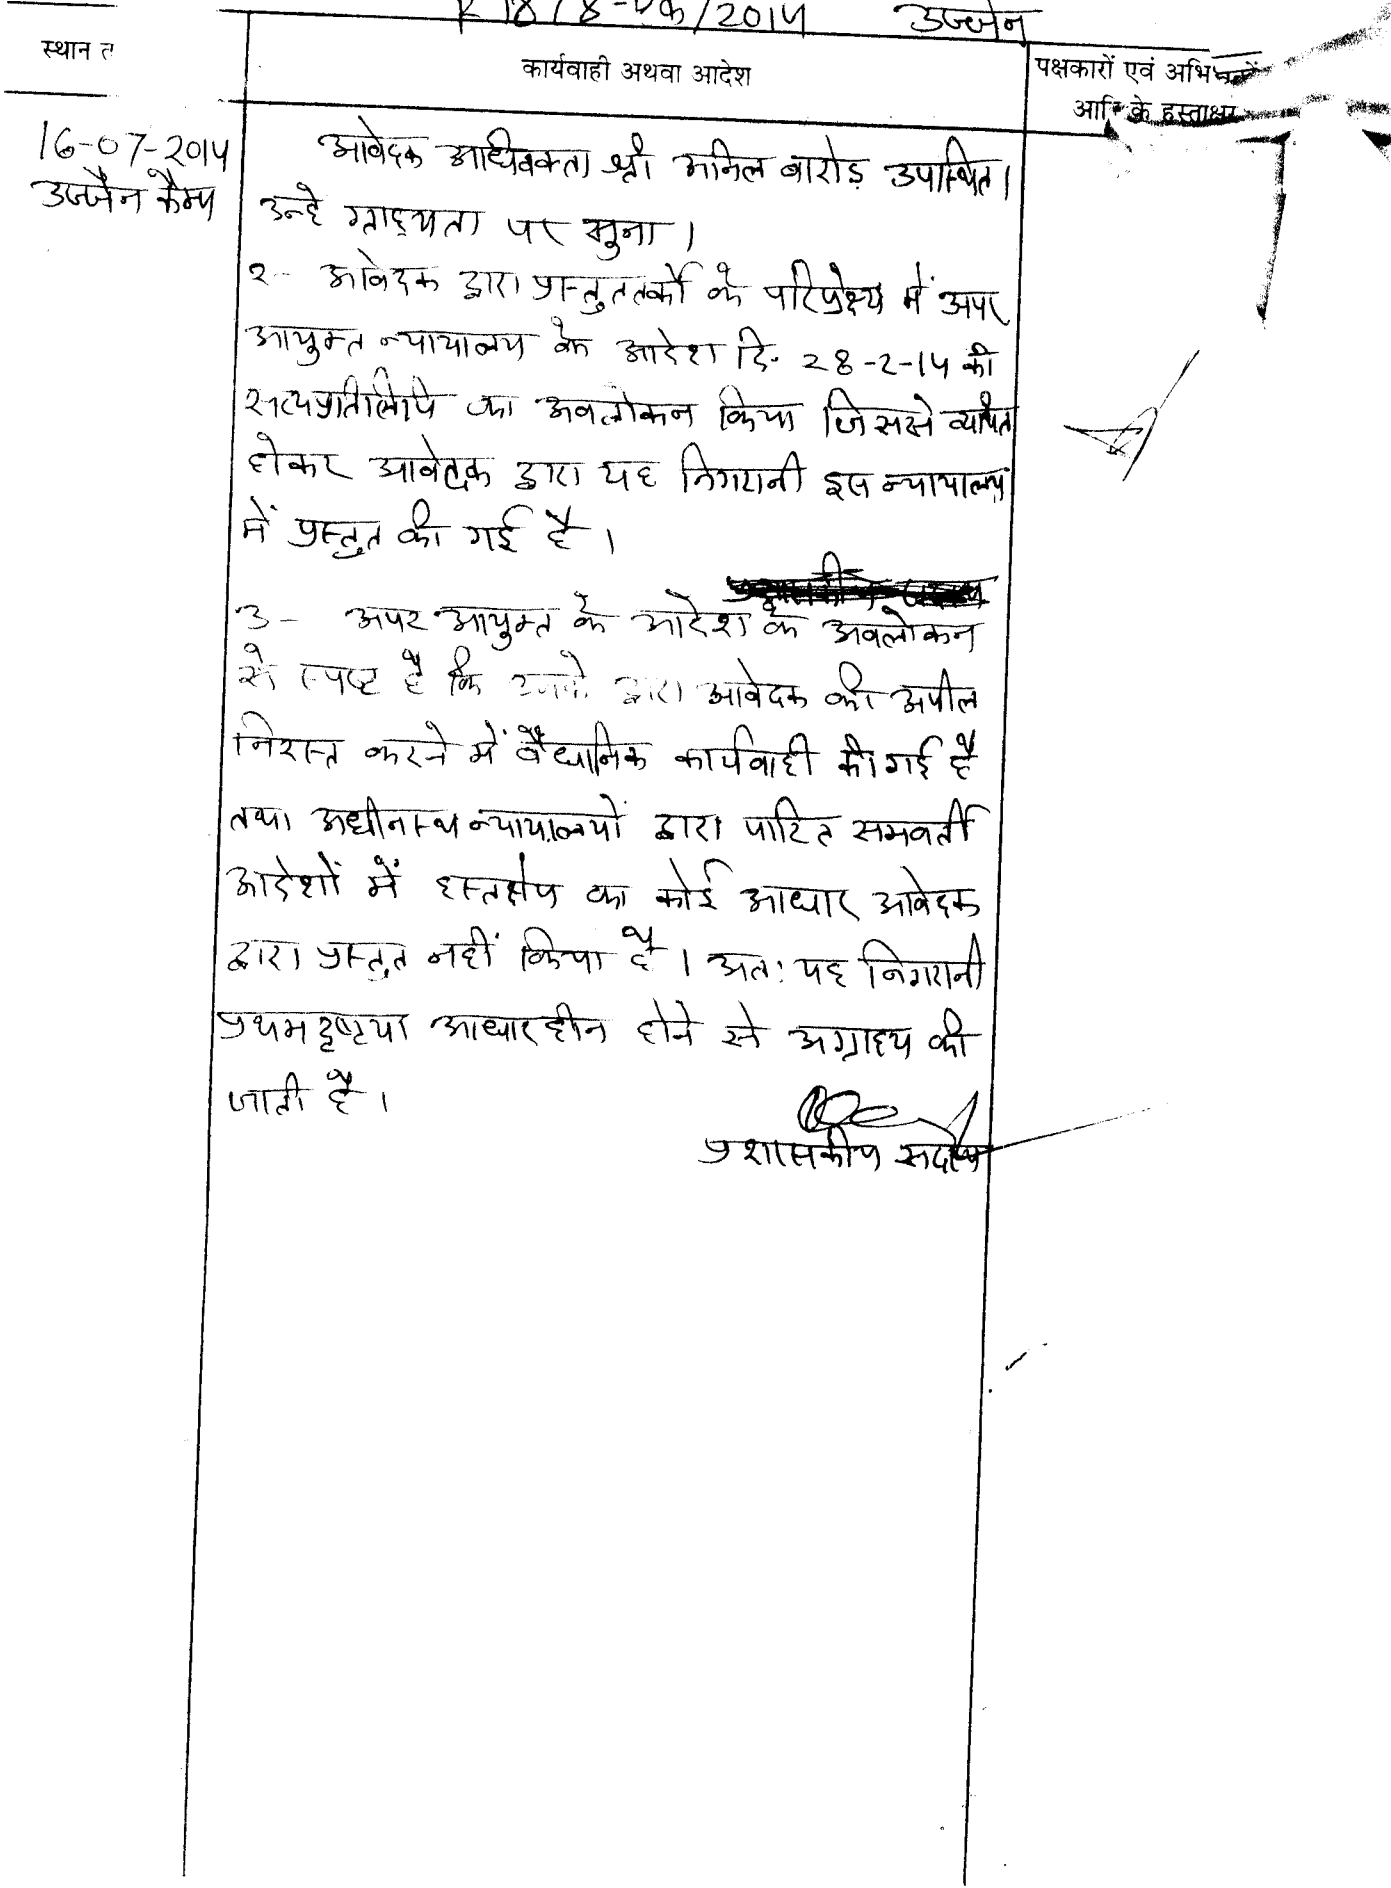 /2014 उज्जैन
स्थान
कार्यवाही अथवा आदेश
पक्षकारों एवं
के हस्ताक्षर
16-07-2014
उज्जैन कैम्प
आवेदक अधिवक्ता श्री अनिल बारोड़ उपस्थित।
उन्हे ग्राह्यता पर सुना।
२- आवेदक द्वारा प्रस्तुत तर्को के परिप्रेक्ष्य में अपर
आयुक्त न्यायालय के आदेश दि. 28-2-14 की
सत्यप्रतिलिपि का अवलोकन किया जिससे व्यथित
होकर आवेदक द्वारा यह निगरानी इस न्यायालय
में प्रस्तुत की गई है।
3- अपर आयुक्त के आदेश के अवलोकन
से स्पष्ट है कि उनके द्वारा आवेदक की अपील
निरस्त करने में वैधानिक कार्यवाही की गई है
तथा अधीनस्थ न्यायालयों द्वारा पारित समवर्ती
आदेशों में हस्तक्षेप का कोई आधार आवेदक
द्वारा प्रस्तुत नहीं किया है। अतः यह निगरानी
प्रथमदृष्टया आधारहीन होने से अग्राह्य की
जाती है।
प्रशासकीय सदस्य